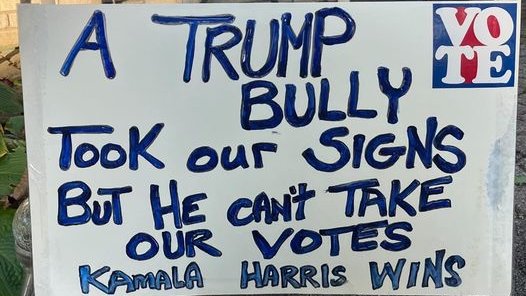 A TRUMP
BULLY
TOOK our SIGNS
BUT HE CAN'T TAKE
OUR VOTES
KAMALA HARRIS WINS
VO
TE